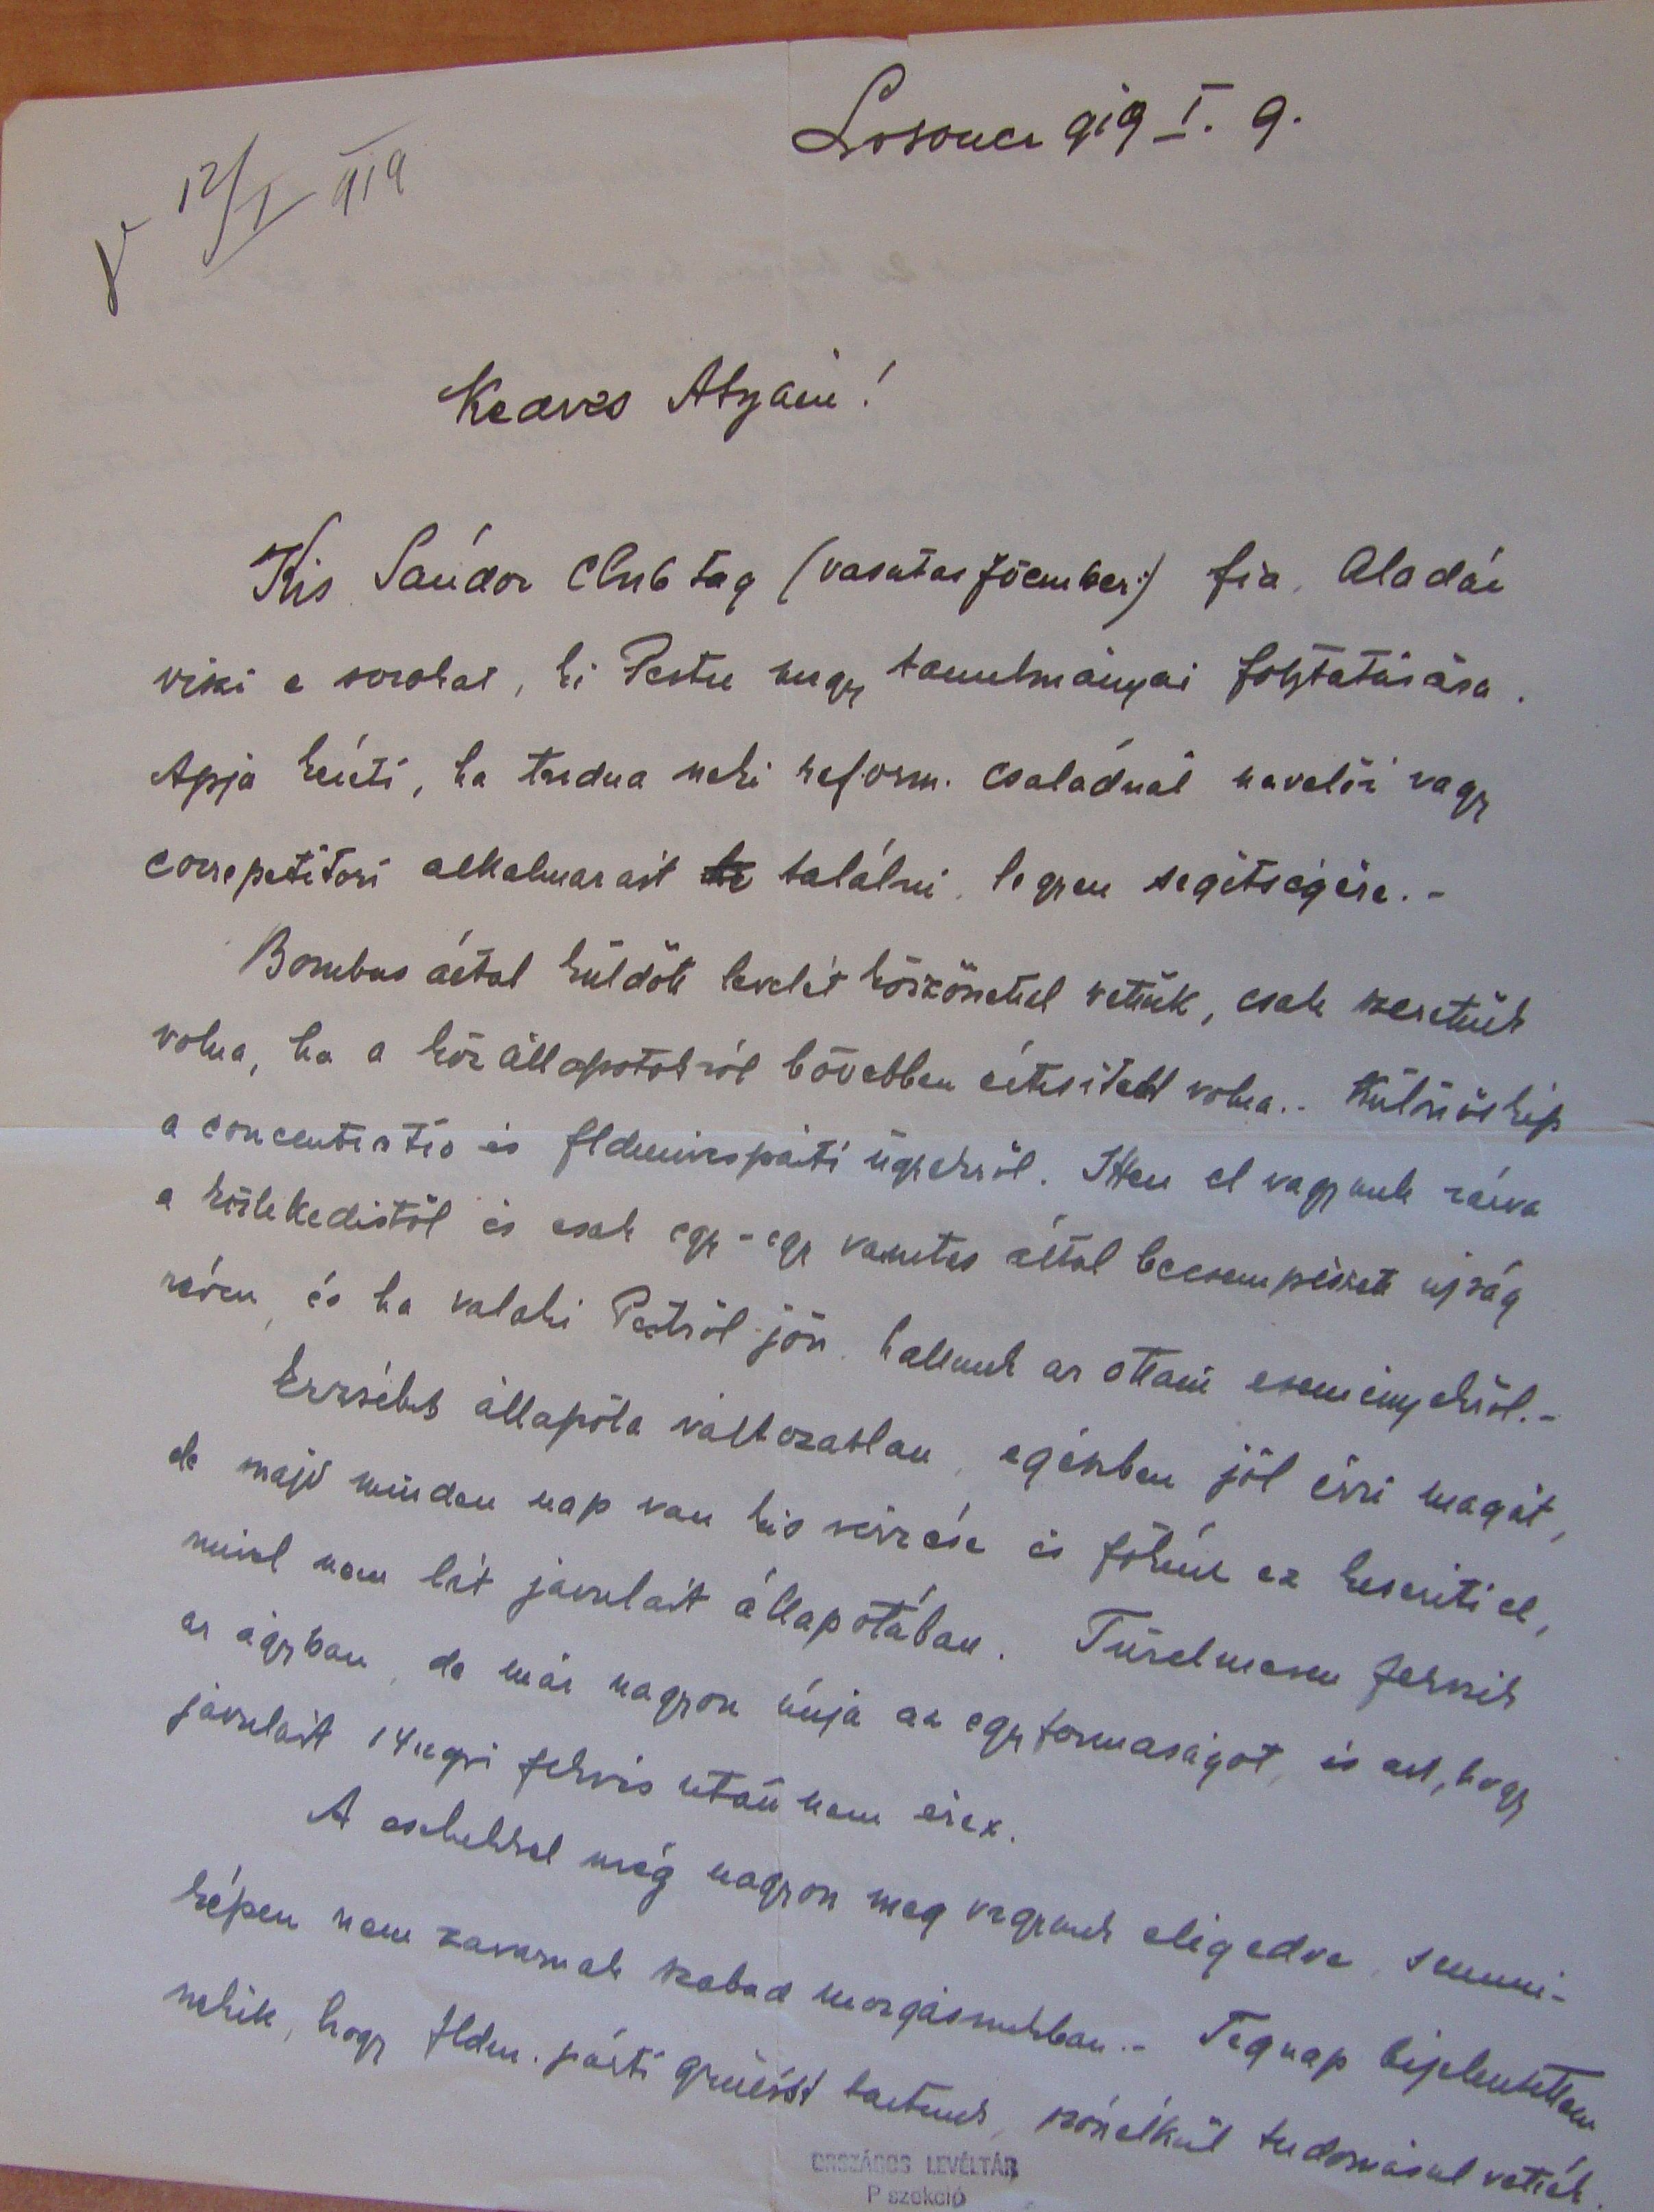 Losoncz 919 I. 9.
12/I 919
Kedves Atyám!
Kis Sándor Club tag (vasutas főember) fia, Aladár
viszi e sorokat, ki Pestre megy tanulmányai folytatására.
Apja kéreti, ha tudna neki reform. családnál nevelői vagy
correpetitori alkalmazást találni, legyen segítségére.-
Bombus által küldött levelét köszönettel vettük, csak szerettük
volna, ha a közállapotokról bővebben értesített volna.- Különöskép
a concentratio és fldmívespárti ügyekről. Itten el vagyunk zárva
a közlekedéstől és csak egy-egy vasutas által becsempészett ujság
révén, és ha valaki Pestről jön, hallunk az ottani eseményekről.-
Erzsébet állapota változatlan, egészben jól érzi magát,
de majd minden nap van kis vérzése és főként ez keseríti el,
mivel nem lát javulást állapotában. Türelmesen fekszik
az ágyban, de már nagyon únja az egyformaságot, és azt, hogy
javulást 14 napi fekvés után nem érez.
A csehekkel még nagyon meg vagyunk elégedve, semmi-
képen nem zavarnak szabad mozgásunkban.- Tegnap bejelentettem
nekik, hogy fldm. párti gyűlést tartunk, szónélkül tudomásul vették.
ORSZÁGOS LEVÉLTÁR
P szekció